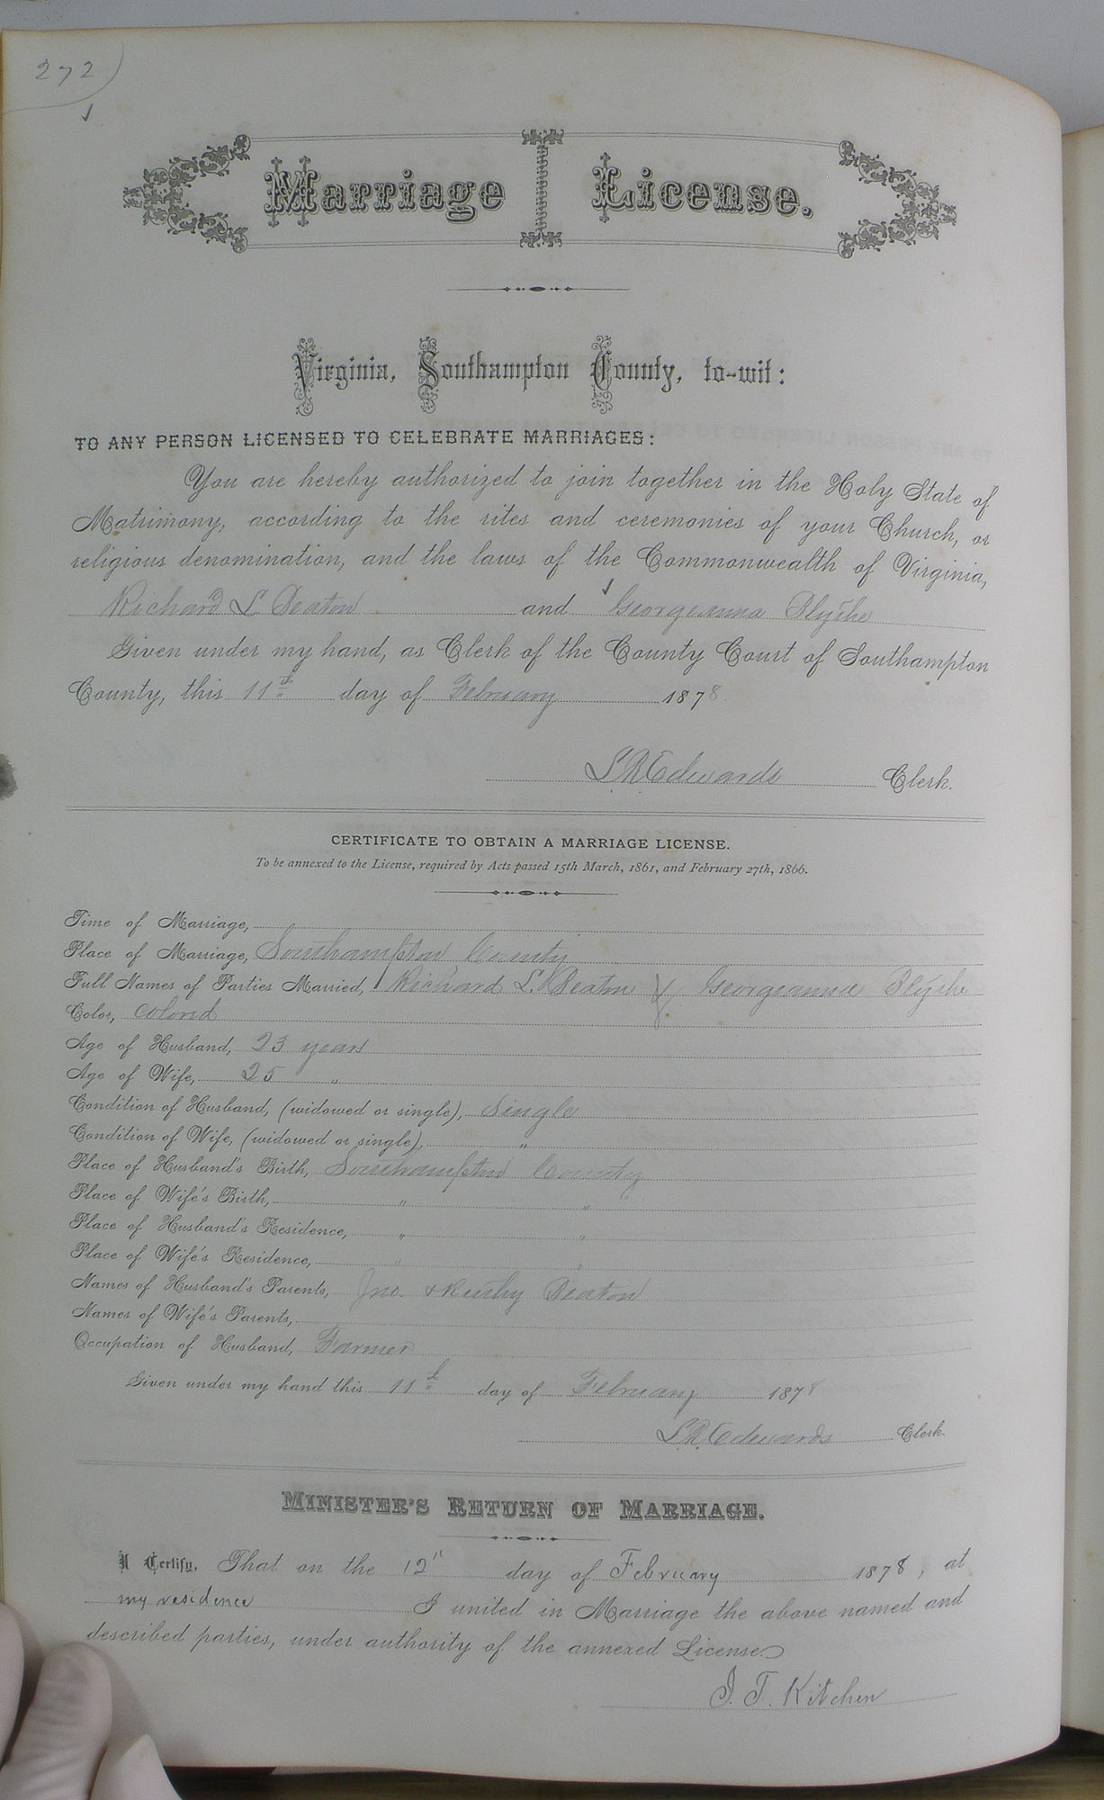 272
Marriage License.
Virginia, Southampton County, to-wit:
TO ANY PERSON LICENSED TO CELEBRATE MARRIAGES:
You are hereby authorized to join together in the Holy State of
Matrimony, according to the rites and ceremonies of your Church, or
religious denomination, and the laws of the Commonwealth of Virginia,
Richard L. Deaton and Georgeanna Blythe
Given under my hand, as Clerk of the County Court of Southampton
County, this 11th day of February 1878
L R Edwards Clerk.
CERTIFICATE TO OBTAIN A MARRIAGE LICENSE.
To be annexed to the License, required by Acts passed 15th March, 1861, and February 27th, 1866.
Time of Marriage,
Place of Marriage, Southampton County
Full Names of Parties Married, Richard L. Deaton & Georgeanna Blythe
Color, Colored
Age of Husband, 23 years
Age of Wife, 25 "
Condition of Husband, (widowed or single), Single
Condition of Wife, (widowed or single), "
Place of Husband's Birth, Southampton County
Place of Wife's Birth, " "
Place of Husband's Residence, " "
Place of Wife's Residence, " "
Names of Husband's Parents, Jno. & Deaton
Names of Wife's Parents,
Occupation of Husband, Farmer
Given under my hand this 11th day of February 1878
L. R. Edwards Clerk.
MINISTER'S RETURN OF MARRIAGE.
I Certify, That on the 12" day of February 1878, at
my residence I united in Marriage the above named and
described parties, under authority of the annexed License.
J. T. Kitchen